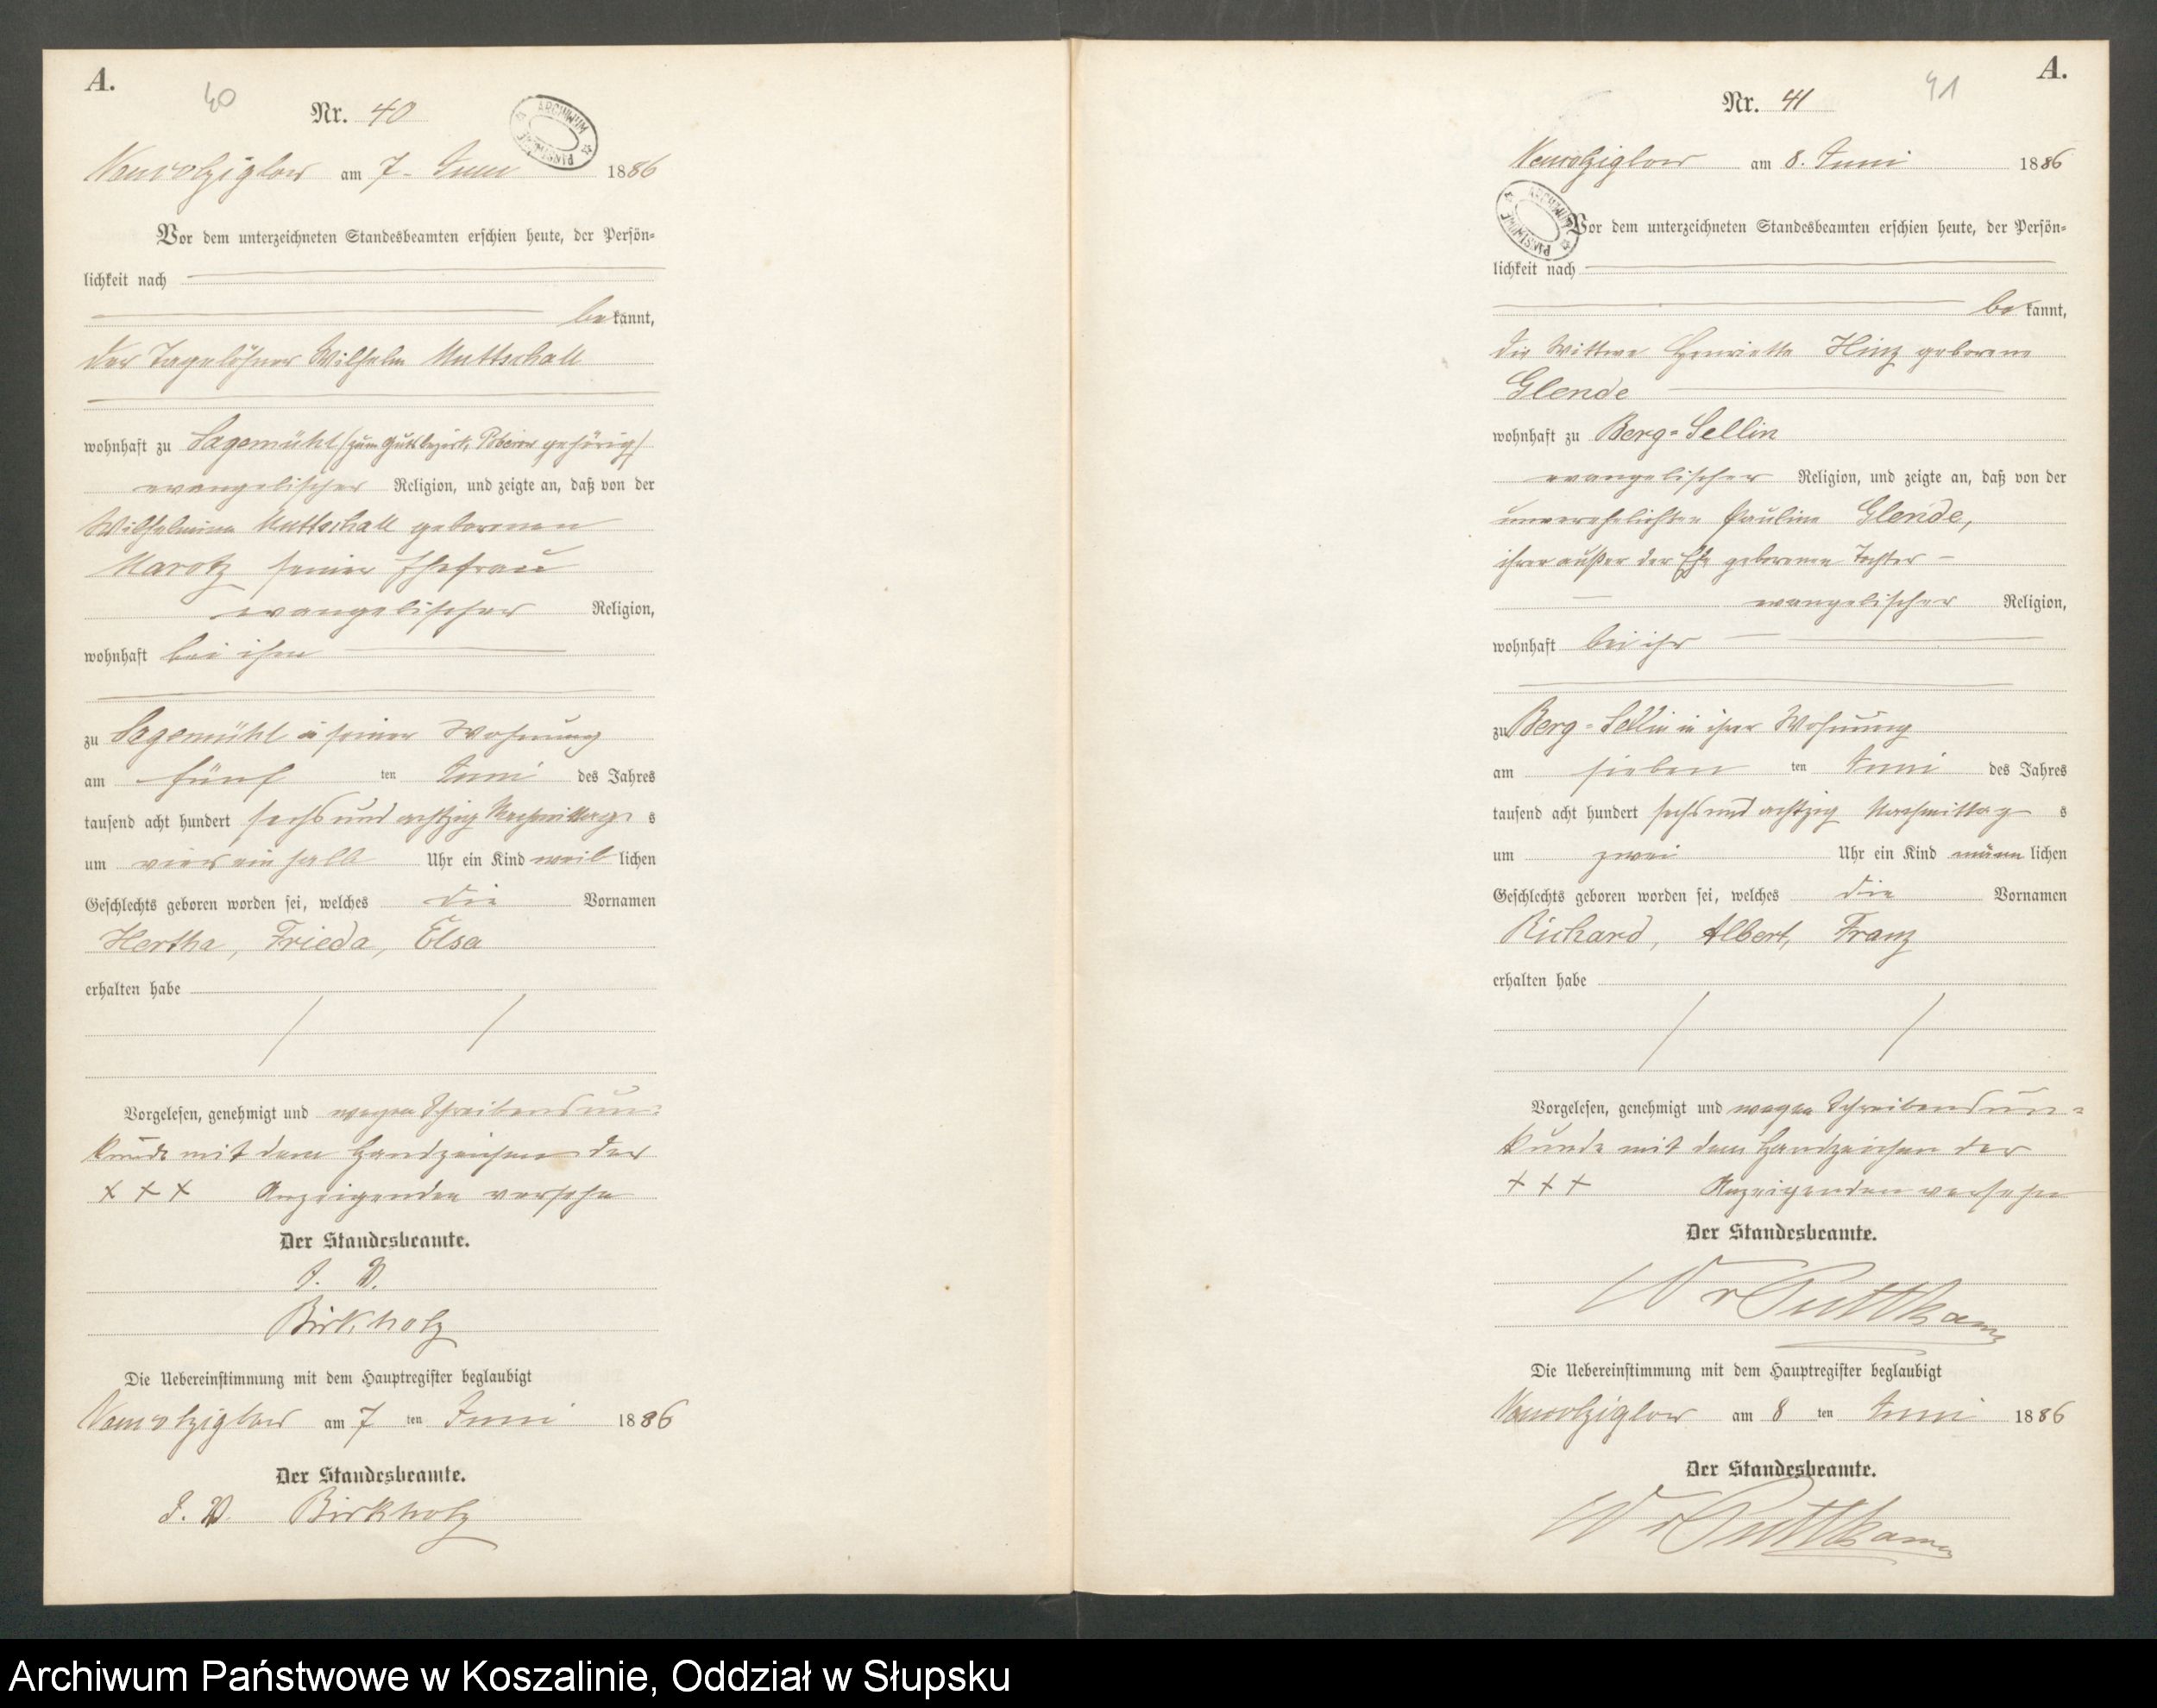 A.
40
Nr. 40
ARCHIWUM PAŃSTWOWE
Neuwolziglow am 7. Juni 1886
Vor dem unterzeichneten Standesbeamten erschien heute, der Persön-
lichkeit nach
bekannt,
der Tagelöhner Wilhelm Muttschall
wohnhaft zu Sagemühl (zum Gutsbezirk, Poberow gehörig)
evangelischer Religion, und zeigte an, daß von der
Wilhelmine Muttschall geborenen
Marotz seiner Ehefrau
evangelischer Religion,
wohnhaft bei ihm
zu Sagemühl in seiner Wohnung
am fünf ten Juni des Jahres
tausend acht hundert sechs und achtzig Nachmittag s
um vier ein halb Uhr ein Kind weiblichen
Geschlechts geboren worden sei, welches die Vornamen
Hertha, Frieda, Elsa
erhalten habe
Vorgelesen, genehmigt und wegen Schreibensun-
kunde mit dem Handzeichen des
+ + + Anzeigenden versehn
Der Standesbeamte.
J. V.
Birkholz
Die Uebereinstimmung mit dem Hauptregister beglaubigt
Neuwolziglow am 7 ten Juni 1886
Der Standesbeamte.
J. V. Birkholz
A.
41
Nr. 41
Neuwolziglow am 8. Juni 1886
ARCHIWUM PAŃSTWOWE
Vor dem unterzeichneten Standesbeamten erschien heute, der Persön-
lichkeit nach
bekannt,
die Wittwe Henriette Hinz geborene
Glende
wohnhaft zu Berg-Sellin
evangelischer Religion, und zeigte an, daß von der
unverehelichten Pauline Glende,
ihrer außer der Ehe geborenen Tochter
evangelischer Religion,
wohnhaft bei ihr
zu Berg-Sellin in ihrer Wohnung
am sieben ten Juni des Jahres
tausend acht hundert sechs und achtzig Nachmittag s
um zwei Uhr ein Kind männlichen
Geschlechts geboren worden sei, welches die Vornamen
Richard, Albert, Franz
erhalten habe
Vorgelesen, genehmigt und wegen Schreibensun-
kunde mit dem Handzeichen der
+ + + Anzeigenden versehn
Der Standesbeamte.
W v Puttkamer
Die Uebereinstimmung mit dem Hauptregister beglaubigt
Neuwolziglow am 8 ten Juni 1886
Der Standesbeamte.
W v Puttkamer
Archiwum Państwowe w Koszalinie, Oddział w Słupsku